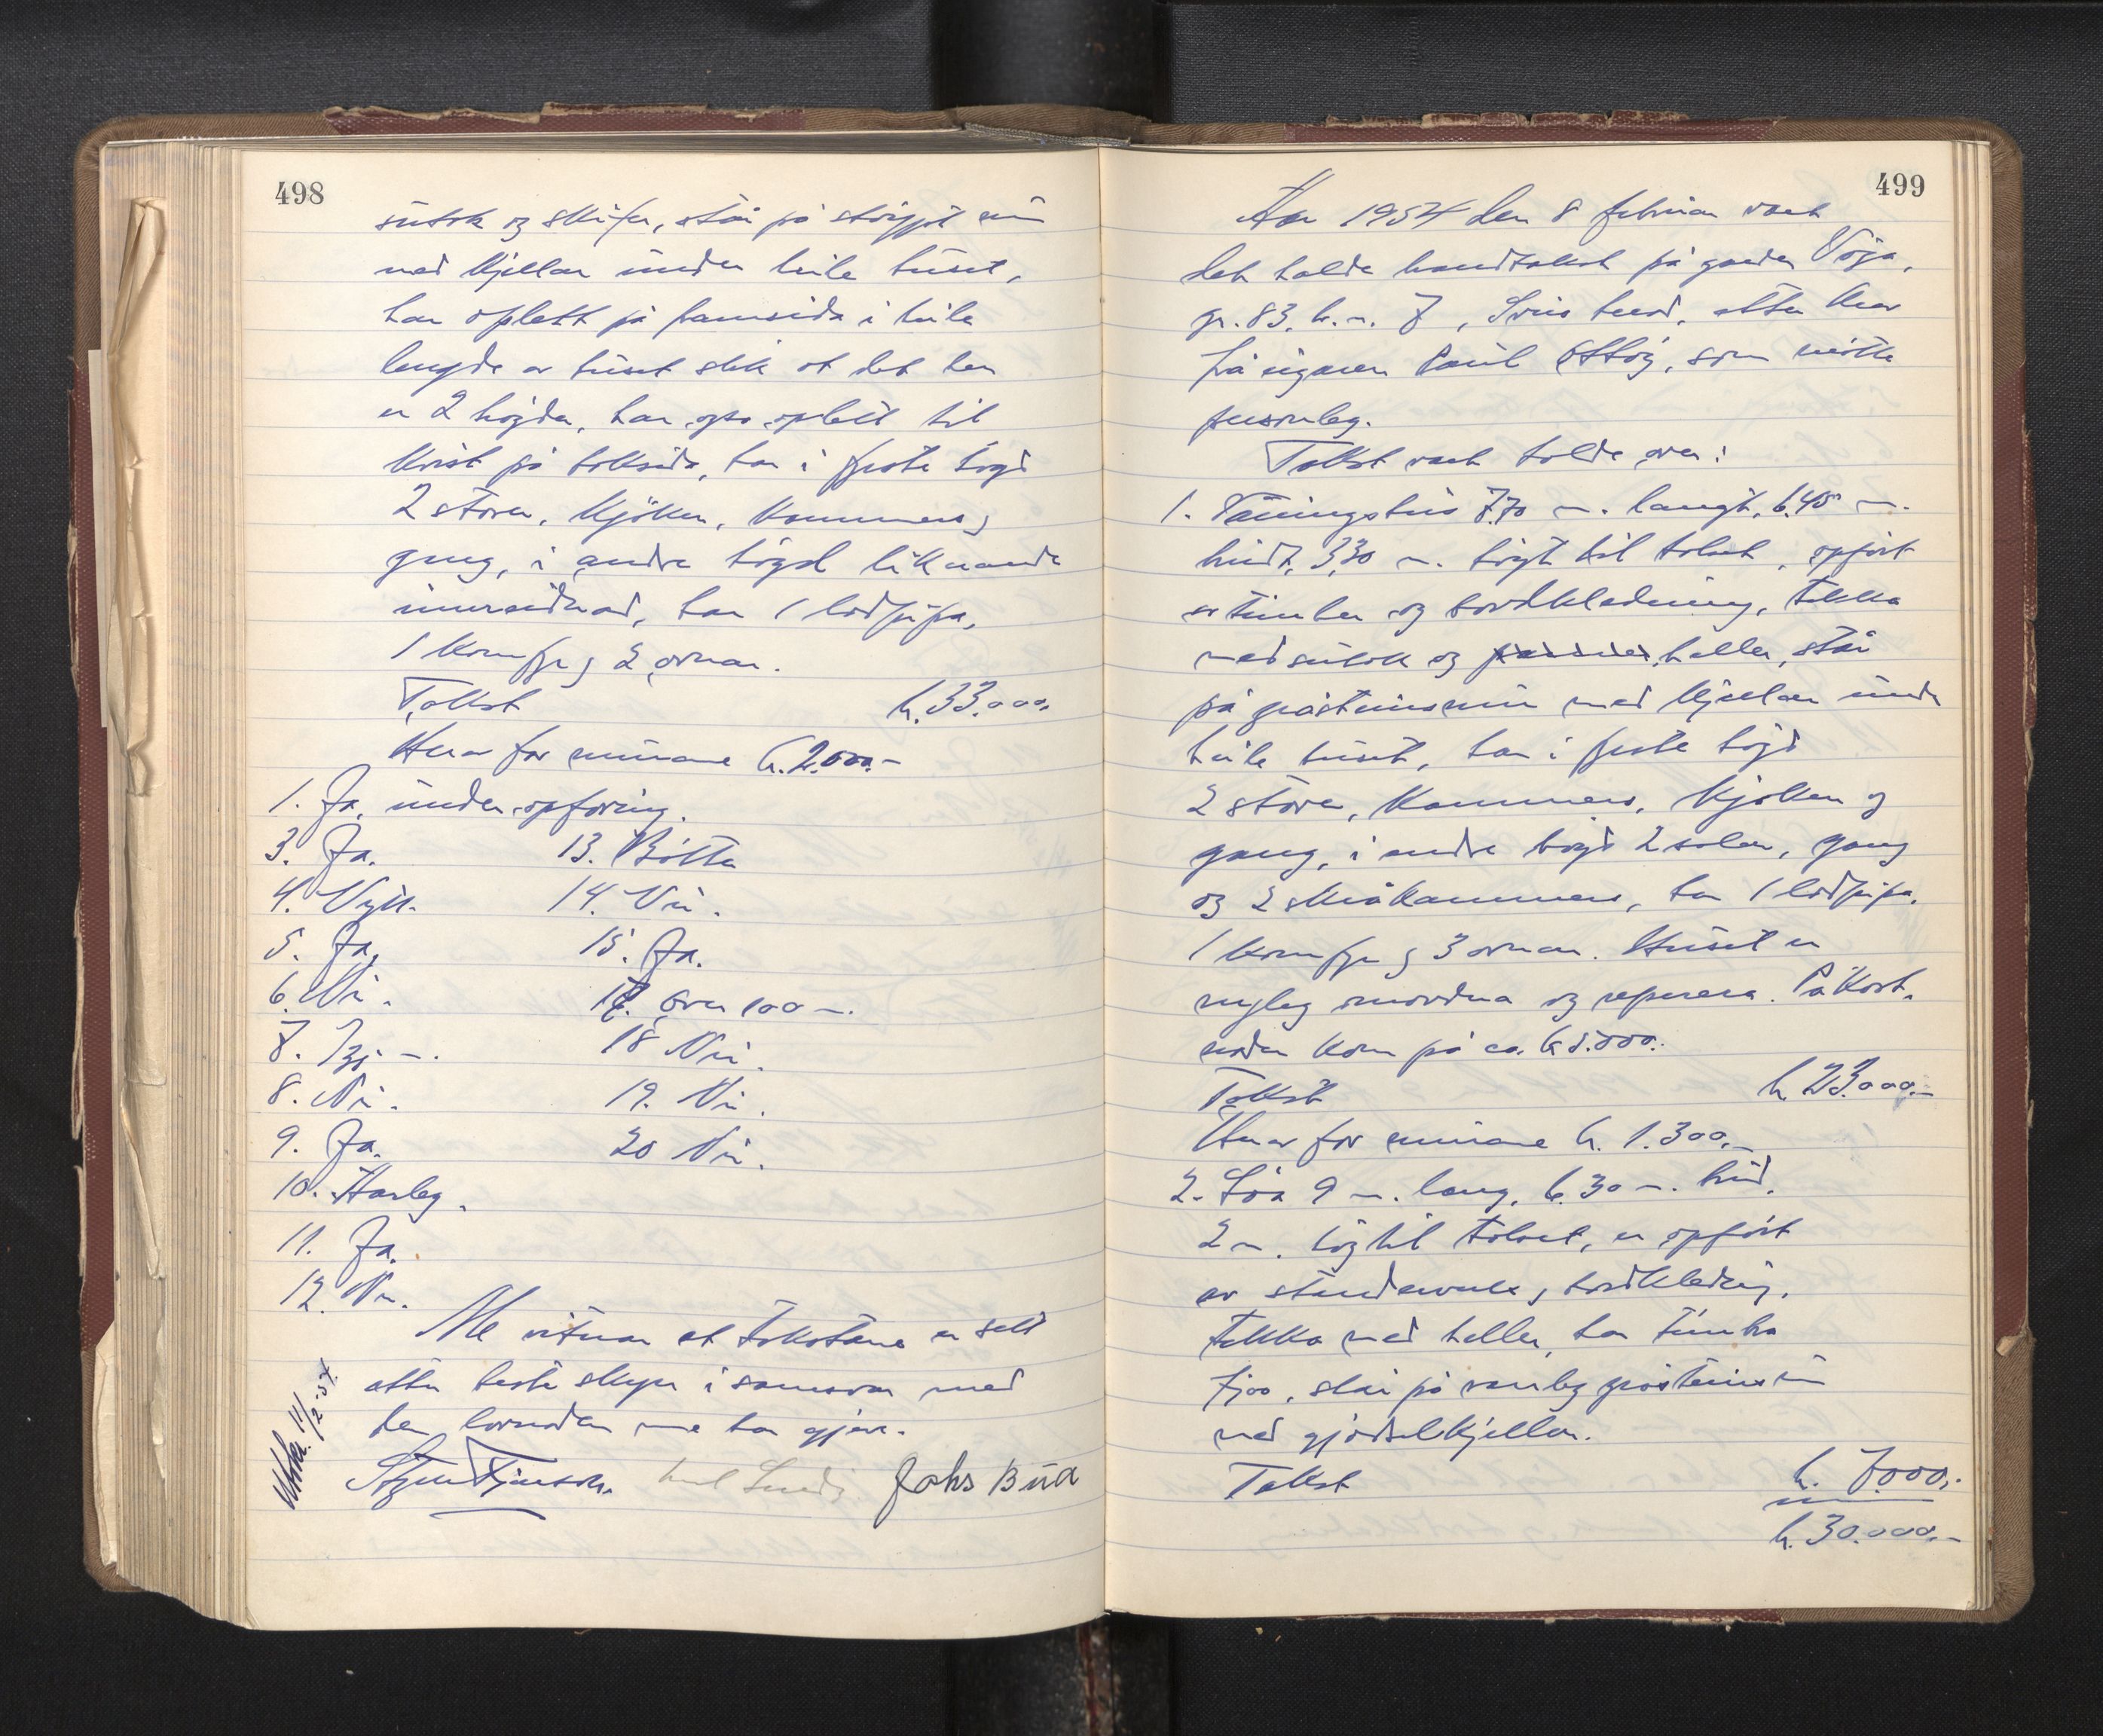 498
sutak og skifer, står på støypt mur
med kjellar under heile huset,
har oplett på framsida i heile
lengda av huset slik at det her
er 2 høgder, har ogso oplett til
kvist på baksida, har i fyrste høgd
2 stover, kjøken, kammers og
gang, i andre høgd liknande
innreidnad, har 1 lodpipa,
1 komfyr og 2 omnar.
Takst k. 33.000.-
Herav for murane k. 2.000.-
1. Ja, under opføring.
3. Ja. 13. Bøtta
4. Nytt. 14. Nei.
5. Ja. 15. Ja.
6. Nei. 17. Over 100 m.
7. m. 18 Nei.
8. Nei. 19. Nei.
9. Ja. 20 Nei.
10. Farleg.
11. Ja.
12. Nei.
Me vitnar at takstane er sett
etter beste skyn i samsvar med
den lovnaden me har gjeve.
Johs Bud
499
Aar 1954 den 8 februar vart
det halde brandtakst på garden
gr. 83, br.n. 7, herad, etter krav
frå eigaren Paul, som møtte
personleg.
Takst vart halde over:
1. Våningshus 7,70 m. langt, 6,45 m.
breidt, 3,30 m. høgt til taket, opført
av timber og bordkledning, tekka
med sutak og heller, står
på gråsteinsmur med kjellar under
heile huset, har i fyrste høgd
2 stover, kammers, kjøken og
gang, i andre høgd 2 salar, gang
og 2 skråkammers, har 1 lodpipa,
1 komfyr og 3 omnar. Huset er
nyleg omordna og reparera. Påkost-
naden kom på ca. k 5.000.-
Takst k. 23.000.-
Herav for murane k. 1.300.-
2. Løa 9 m. lang, 6.30 m. breid,
2 m. høg til taket, er opført
av stenderverk og bordkledning,
tekka med heller, har timbra
fjos, står på vanleg gråsteinsmur
med gjødselkjellar.
Takst k. 7.000.-
k. 30.000.-